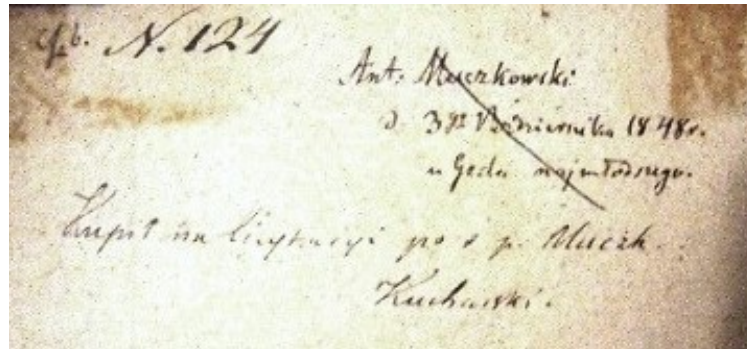 N. 124
Ant. Muczkowski
d. 3go Października 1848r.
u Geda najmłodszego.
Kupił na licytacyi po ś p. Muczk.
Kucharski.